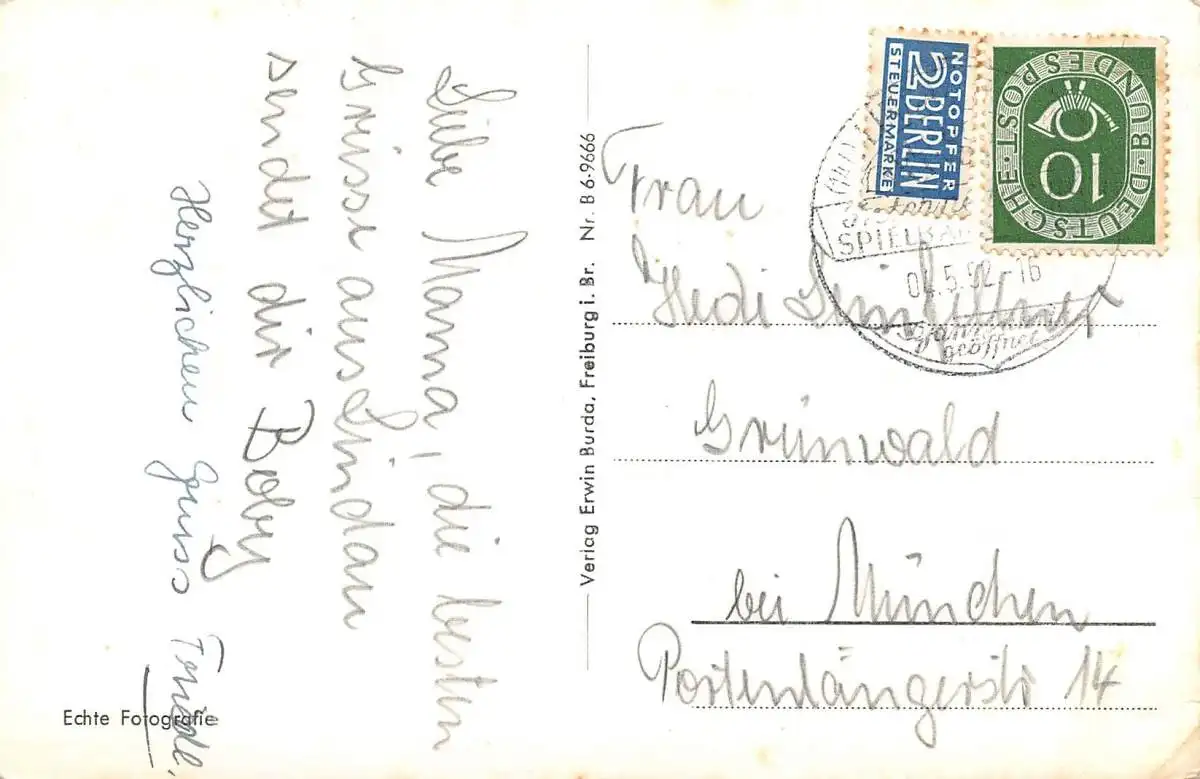 Liebe Mama, die besten
Grüsse aus Lindau
sendet dir Boby
Herzlichen Gruss Friedl.
Echte Fotografie
Verlag Erwin Burda, Freiburg i. Br. Nr. B 6-9666
NOTOPFER
2 BERLIN
STEUERMARKE
DEUTSCHE BUNDESPOST
10
5.52-16
geöffnet
Frau
Hedi
Grünwald
bei München
Portenlängerstr 14